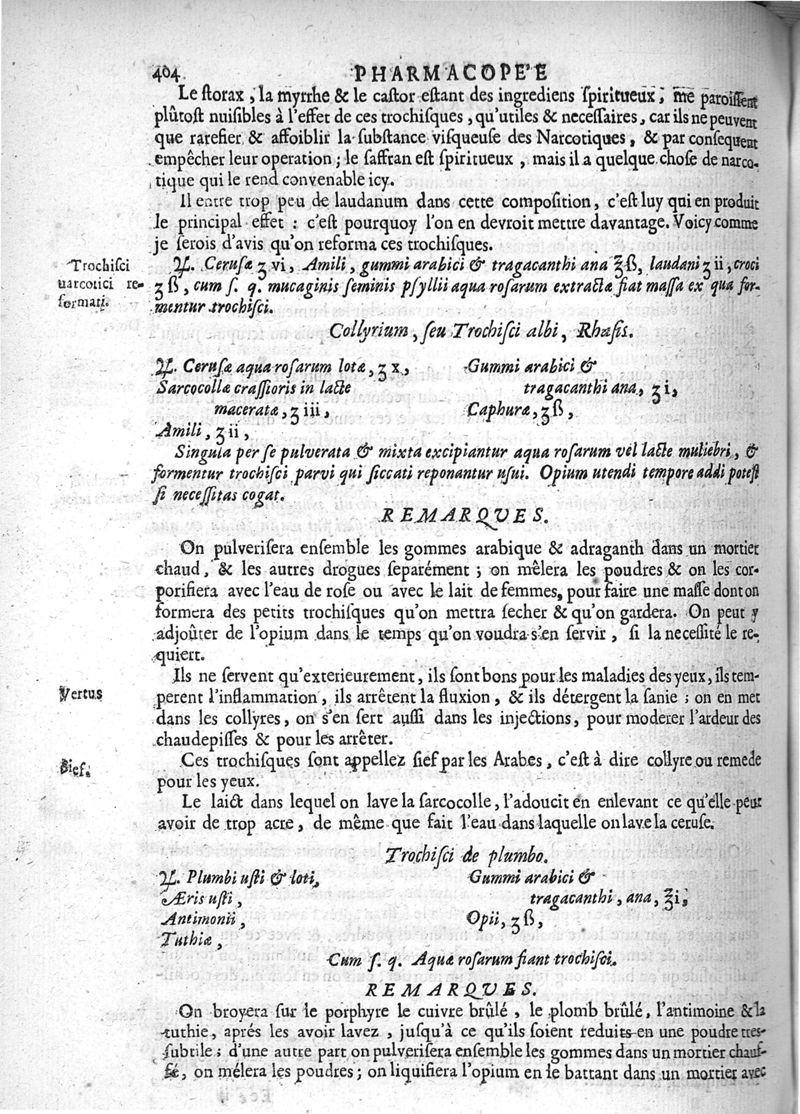 404 PHARMACOPE'E
Le ſtorax, la myrrhe & le caſtor eſtant des ingrediens ſpiritueux, me paroiſſent
plûtoſt nuiſibles à l'effet de ces trochiſques, qu'utiles & neceſſaires, car ils ne peuvent
que rarefier & affoiblir la ſubſtance viſqueuſe des Narcotiques, & par conſequent
empêcher leur operation; le ſaffran eſt ſpiritueux, mais il a quelque choſe de narco-
tique qui le rend convenable icy.
Il entre trop peu de laudanum dans cette compoſition, c'eſt luy qui en produit
le principal effet : c'eſt pourquoy l'on en devroit mettre davantage. Voicy comme
je ſerois d'avis qu'on reforma ces trochiſques.
Trochiſci
narcotici re-
formati.
♃. Ceruſæ ʒ vi, Amili, gummi arabici & tragacanthi ana ʒß, laudani ʒ ii, croci
ʒ ß, cum ſ. q. mucaginis ſeminis pſyllii aqua roſarum extractæ fiat maſſa ex qua for-
mentur trochiſci.
Collyrium, ſeu Trochiſci albi, Rhaſis.
♃. Ceruſæ aqua roſarum lotæ, ʒ x,
Sarcocollæ craſſioris in lacte
maceratæ, ʒ iii,
Amili, ʒ ii,
Gummi arabici &
tragacanthi ana, ʒi,
Caphuræ, ʒß,
Singula per ſe pulverata & mixta excipiantur aqua roſarum vel lacte muliebri, &
formentur trochiſci parvi qui ſiccati reponantur uſui. Opium utendi tempore addi poteſt
ſi neceſſitas cogat.
REMARQUES.
On pulveriſera enſemble les gommes arabique & adraganth dans un mortier
chaud, & les autres drogues ſeparément; on mêlera les poudres & on les cor-
porifiera avec l'eau de roſe ou avec le lait de femmes, pour faire une maſſe dont on
formera des petits trochiſques qu'on mettra ſecher & qu'on gardera. On peut y
adjoûter de l'opium dans le temps qu'on voudra s'en ſervir, ſi la neceſſité le re-
quiert.
Vertus
Ils ne ſervent qu'exterieurement, ils ſont bons pour les maladies des yeux, ils tem-
perent l'inflammation, ils arrêtent la fluxion, & ils détergent la ſanie; on en met
dans les collyres, on s'en ſert auſſi dans les injections, pour moderer l'ardeur des
chaudepiſſes & pour les arrêter.
Sief.
Ces trochiſques ſont appellez ſief par les Arabes, c'eſt à dire collyre ou remede
pour les yeux.
Le laict dans lequel on lave la ſarcocolle, l'adoucit en enlevant ce qu'elle peut
avoir de trop acre, de même que fait l'eau dans laquelle on lave la ceruſe.
Trochiſci de plumbo.
♃. Plumbi uſti & loti,
Æris uſti,
Antimonii,
Tuthiæ,
Gummi arabici &
tragacanthi, ana, ʒi,
Opii, ʒß,
Cum ſ. q. Aquæ roſarum fiant trochiſci.
REMARQUES.
On broyera ſur le porphyre le cuivre brûlé, le plomb brûlé, l'antimoine & la
tuthie, aprés les avoir lavez, juſqu'à ce qu'ils ſoient reduits en une poudre tres-
ſubtile; d'une autre part on pulveriſera enſemble les gommes dans un mortier chauf-
fé, on mélera les poudres; on liquifiera l'opium en le battant dans un mortier avec